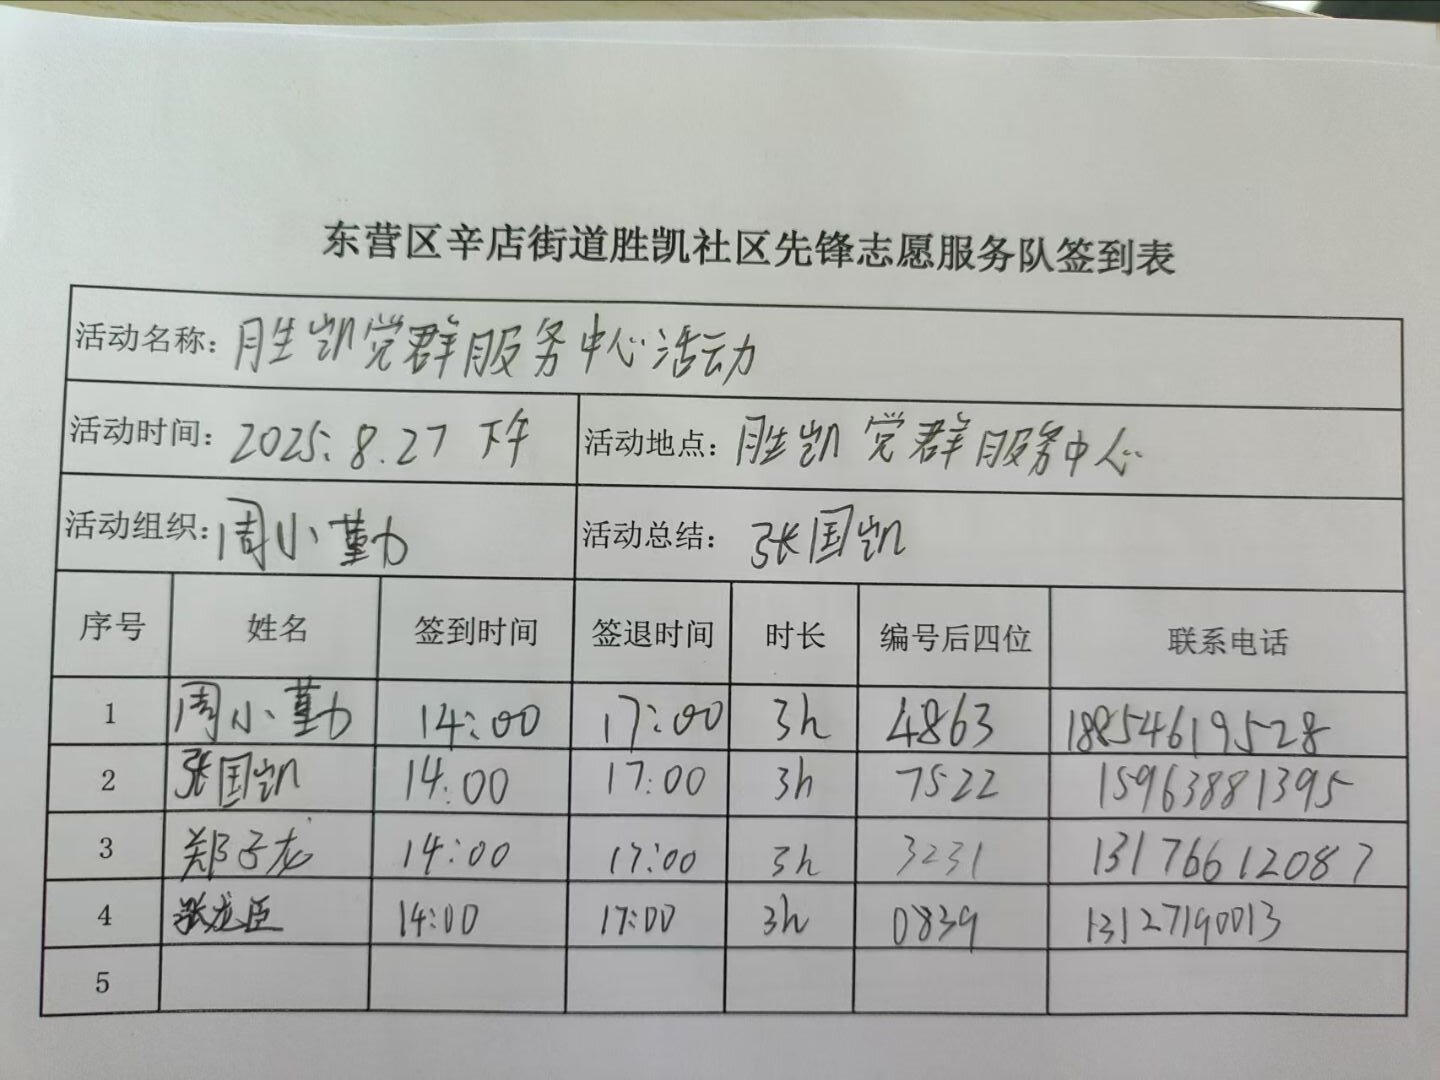 东营区辛店街道胜凯社区先锋志愿服务队签到表
活动名称: 胜凯党群服务中心活动
活动时间: 2025.8.27 下午 活动地点: 胜凯党群服务中心
活动组织: 周小勤 活动总结: 张国凯
序号 姓名 签到时间 签退时间 时长 编号后四位 联系电话
1 周小勤 14:00 17:00 3h 4863 18854619528
2 张国凯 14:00 17:00 3h 7522 15963881395
3 郑子龙 14:00 17:00 3h 3231 13176612087
4 张龙臣 14:00 17:00 3h 0839 13127190013
5